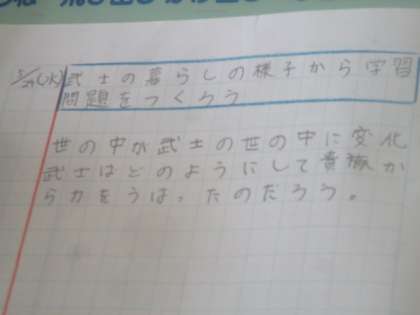 5/29(火)武士の暮らしの様子から学習
問題をつくろう
世の中が武士の世の中に変化
武士はどのようにして貴族か
ら力をうばったのだろう。